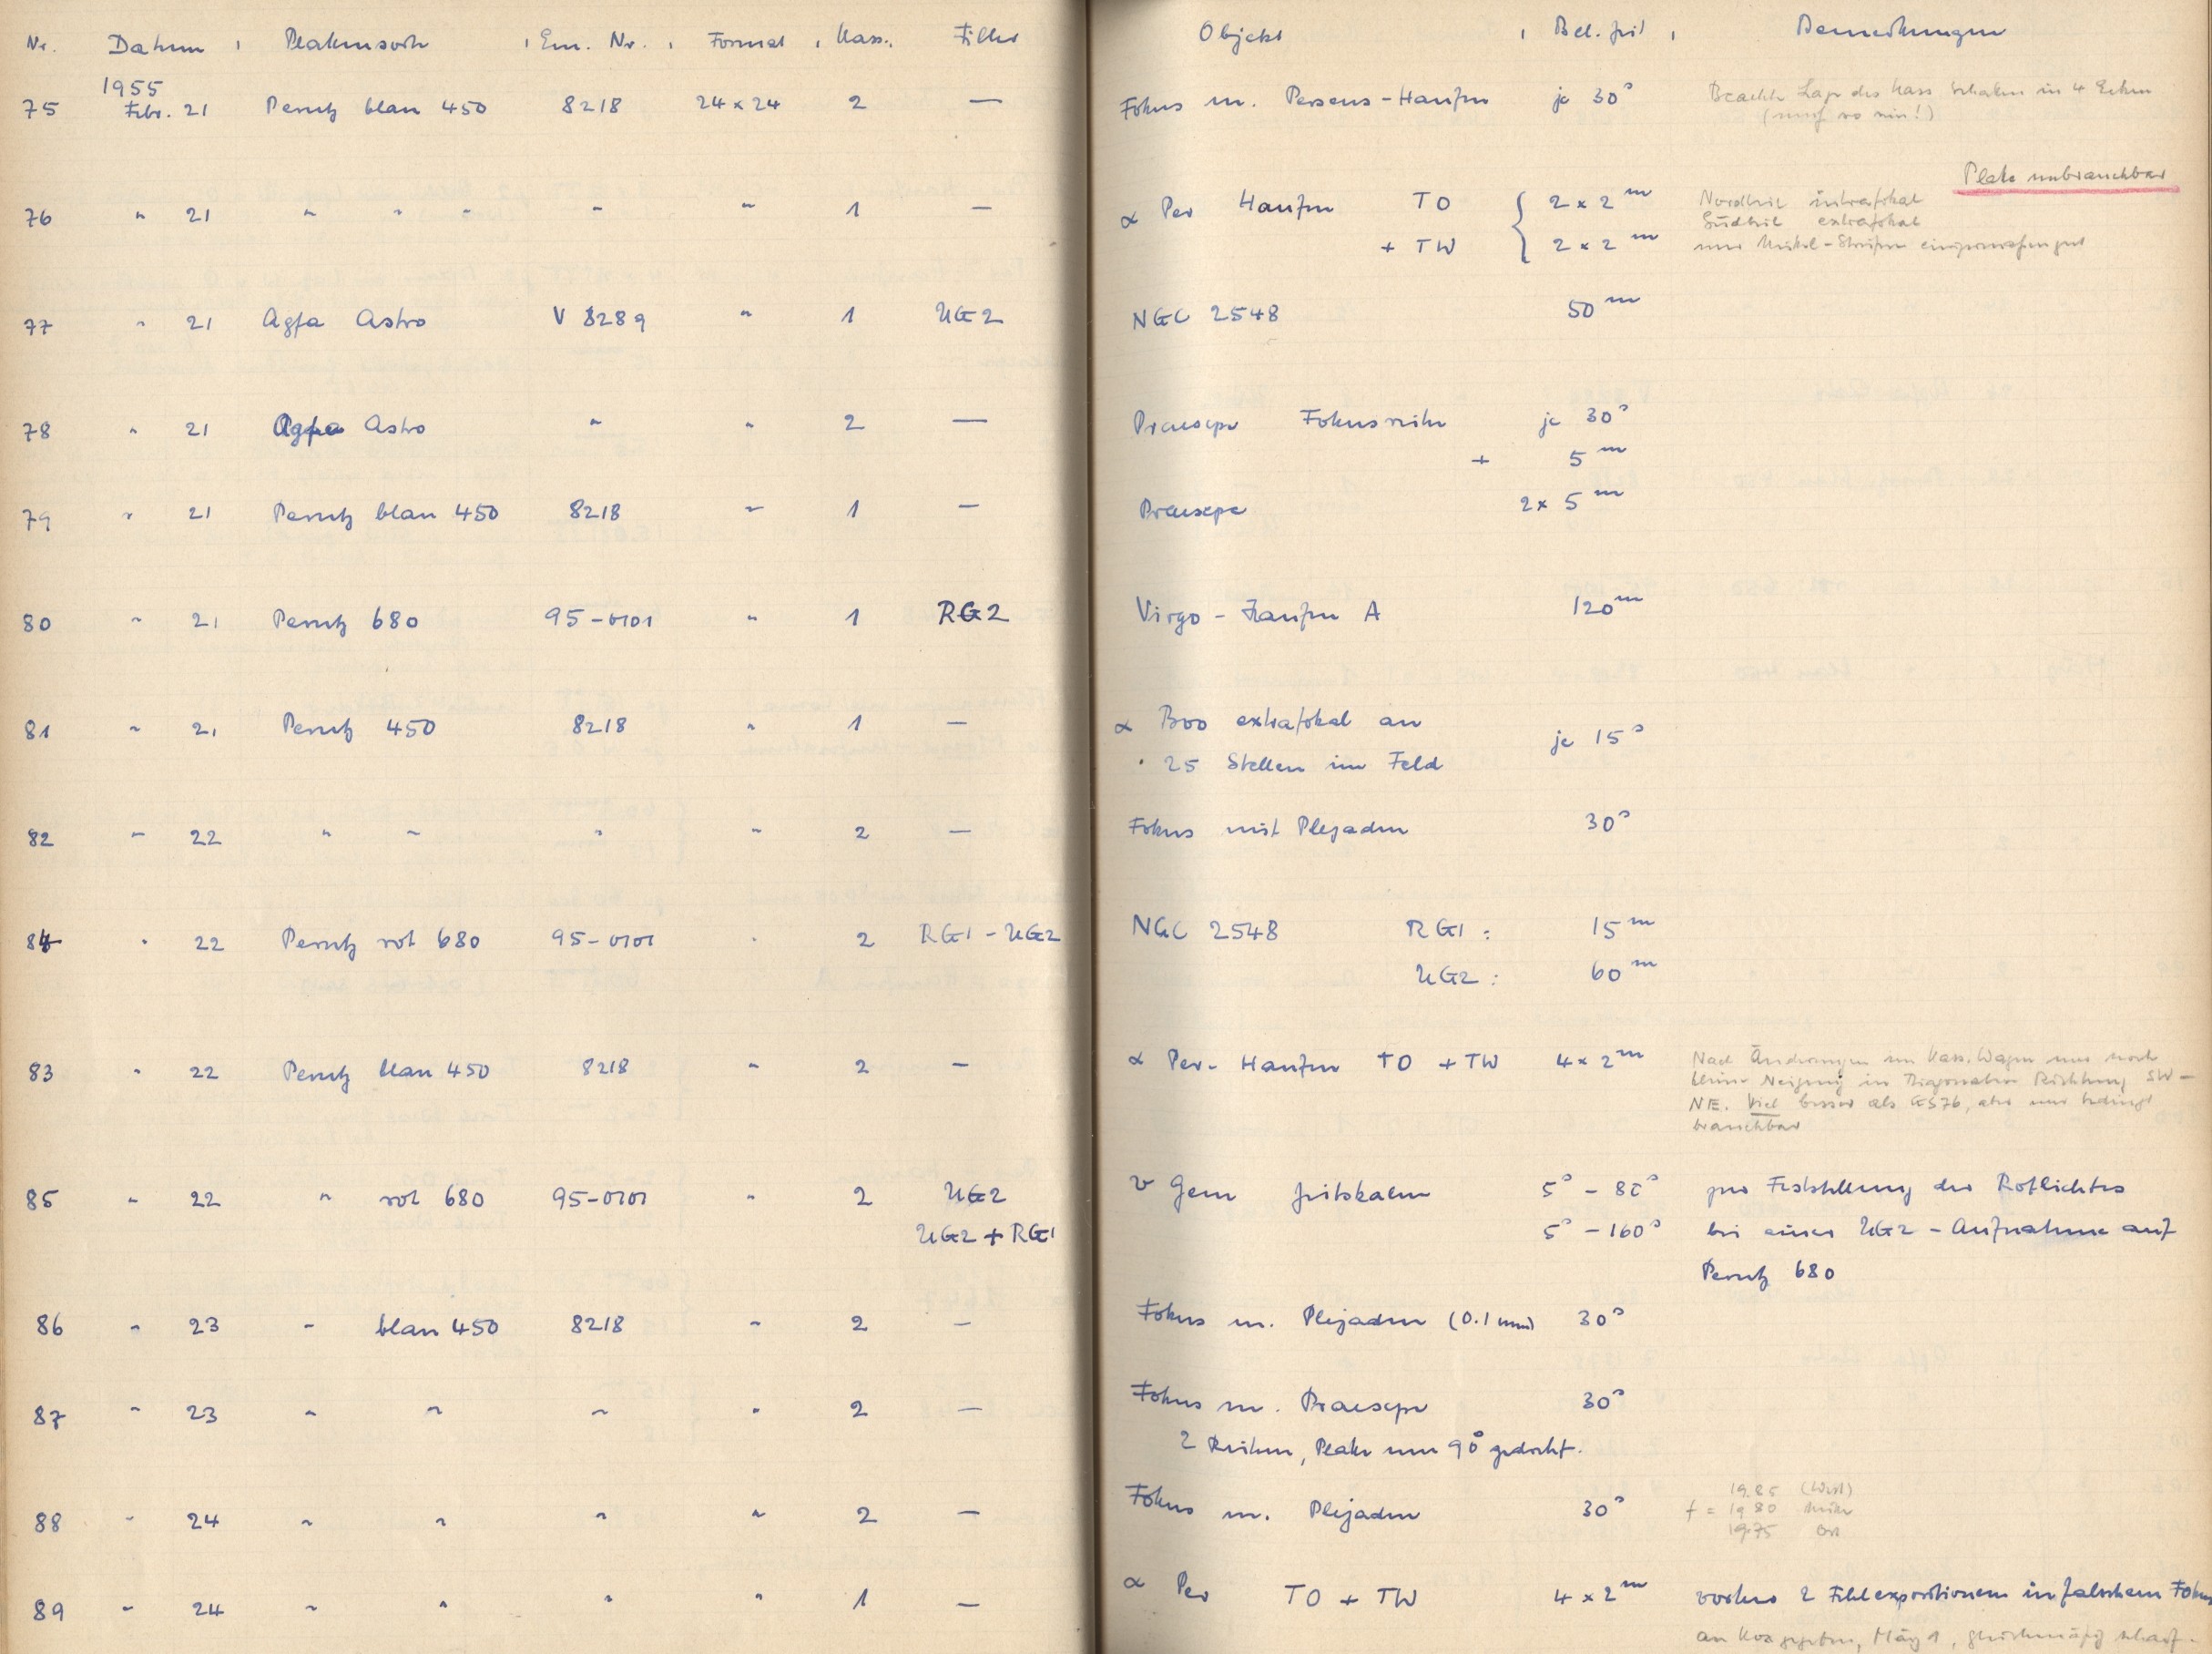 Nr. Datum Plattensorte Em. Nr. Format Kass. Filter Objekt Bel. zeit Bemerkungen
1955
75 Febr. 21 Perutz blau 450 8218 24 x 24 2 — Fokus m. Perseus-Haufen je 30s Beachte Lage des Kass Schalen in 4 Ecken
(muß so sein!)
Platte unbrauchbar
76 " 21 " " " " " 1 — α Per Haufen TO { 2 x 2m Nordteil intrafokal
Südteil extrafokal
+ TW 2 x 2m nur Mittel-Streifen
77 " 21 Agfa Astro V 8289 " 1 UG2 NGC 2548 50m
78 " 21 Agfa Astro " " 2 — Praesepe Fokusreihe je 30s
+ 5m
79 " 21 Perutz blau 450 8218 " 1 — Praesepe 2x 5m
80 " 21 Perutz 680 95-0101 " 1 RG2 Virgo - Haufen A 120m
81 " 21 Perutz 450 8218 " 1 — α Boo extrafokal an
25 Stellen im Feld je 15s
82 " 22 " " " " 2 — Fokus mit Plejaden 30s
84 " 22 Perutz rot 680 95-0101 " 2 RG1 - UG2 NGC 2548 RG1 : 15m
UG2 : 60m
83 " 22 Perutz blau 450 8218 " 2 — α Per- Haufen TO + TW 4 x 2m Nach Änderungen am Kass. Wagen nur noch
kleine Neigung in Diagonaler Richtung SW -
NE. Viel besser als GS76, aber nur bedingt
brauchbar
85 " 22 " rot 680 95-0101 " 2 UG2 ν Gem Zeitskalen 5s - 80s zur Feststellung des Rotlichtes
UG2 + RG1 5s - 160s bei einer UG2 - Aufnahme auf
Perutz 680
86 " 23 " blau 450 8218 " 2 — Fokus m. Plejaden (0.1 mm) 30s
87 " 23 " " " " 2 — Fokus m. Praesepe 30s
2 Reihen, Platte um 90° gedreht.
88 " 24 " " " " 2 — Fokus m. Plejaden 30s 19.85 (West)
f = 19.80 Mitte
19.75 Ost
89 " 24 " " " " 1 — α Per TO + TW 4 x 2m vorher 2 Fehlexpositionen in falschem Fokus
an gegeben, März 1, gleichmäßig scharf.